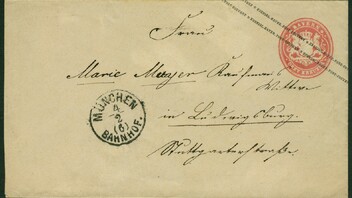 BAYERN
Frau
Marie Mayer Kaufmanns
Wittwe
in Ludwigsburg.
Stuttgarterstraße.
MÜNCHEN
4
2
(6)
BAHNHOF.